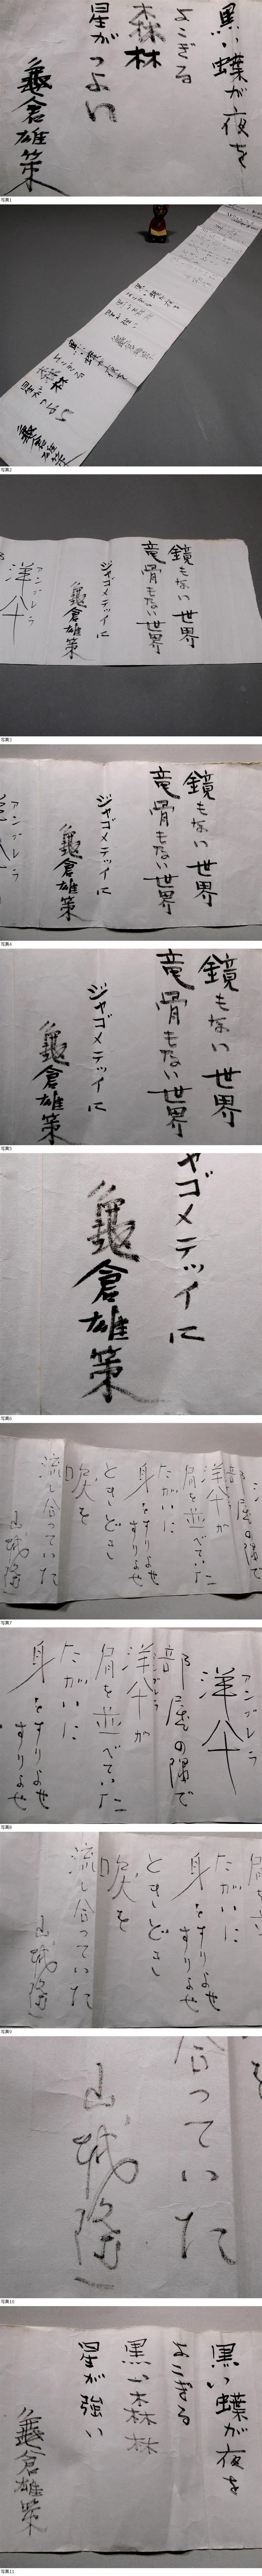 黒い蝶が夜を
よこぎる
森林
星がつよい
龜倉雄策
写真1
黒い蝶が夜を
よこぎる
森林
星がつよい
龜倉雄策
写真2
鏡もない世界
竜骨もない世界
ジャゴメティに
龜倉雄策
アンブレラ
洋傘
写真3
鏡もない世界
竜骨もない世界
ジャゴメティに
龜倉雄策
アンブレラ
写真4
鏡もない世界
竜骨もない世界
ジャゴメティに
龜倉雄策
写真5
ャゴメティに
龜倉雄策
写真6
部屋の隅で
洋傘が
肩を並べていた
たがいに
身をすりよせ
すりよせ
ときどき
吹を
流し合っていた
山城隆一
写真7
アンブレラ
洋傘
部屋の隅で
洋傘が
肩を並べていた
たがいに
身をすりよせ
すりよせ
写真8
たがいに
身をすりよせ
すりよせ
ときどき
吹を
流し合っていた
山城隆一
写真9
合っていた
山城隆一
写真10
黒い蝶が夜を
よこぎる
黒い森林
星が強い
龜倉雄策
写真11